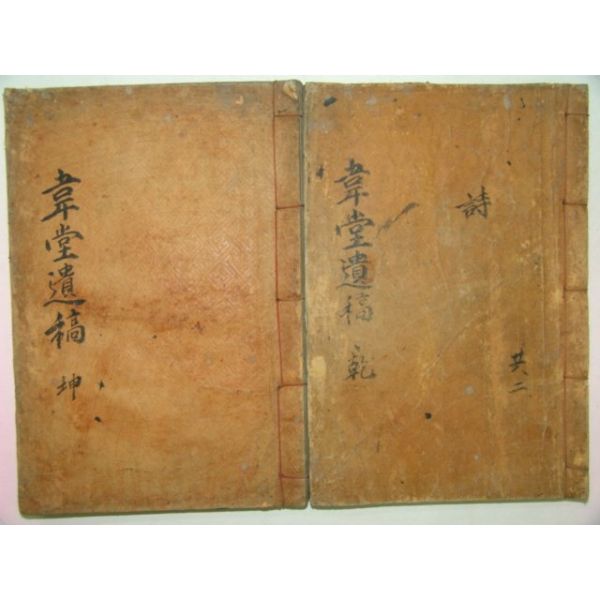 韋堂遺稿 坤
韋堂遺稿 乾
詩
共二